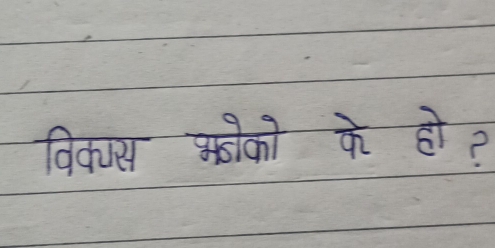 विकास भनेको के हो ?